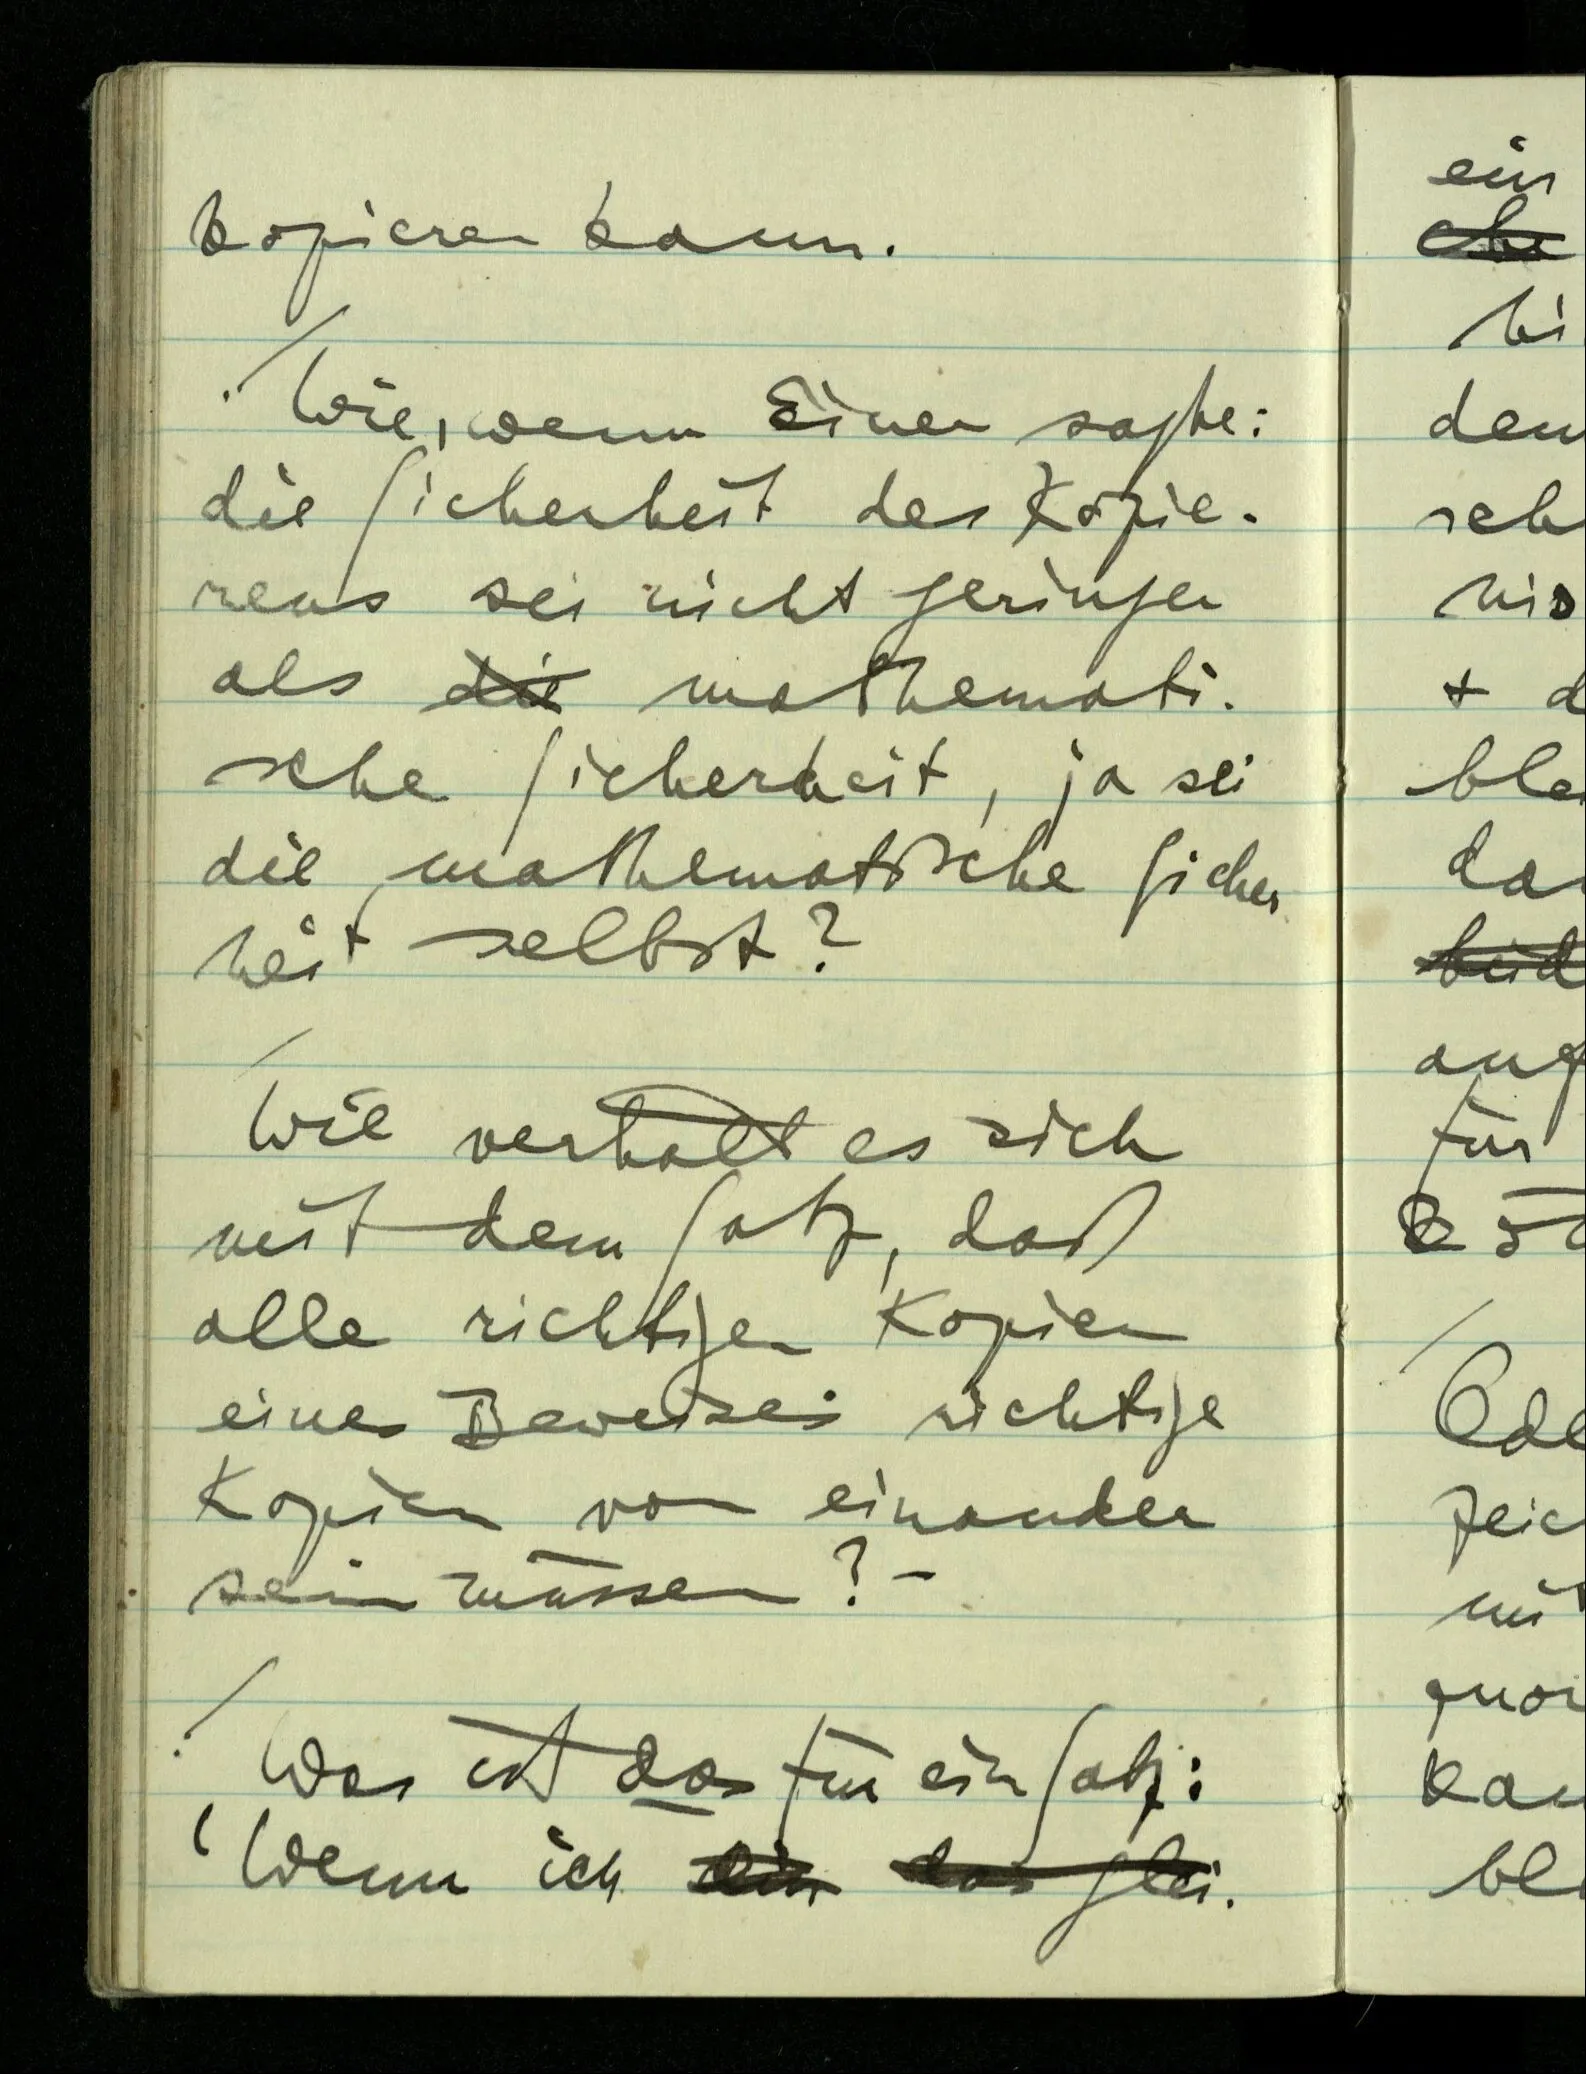 kopieren kann.
Wie, wenn Einer sagte:
die Sicherheit des Kopie-
rens sei nicht geringer
als die mathemati-
sche Sicherheit, ja sei
die mathematische Sicher
heit selbst?
Wie verhält es sich
mit dem Satz, daß
alle richtigen Kopien
eines Beweises richtige
Kopien von einander
sein müssen? –
Was ist das für ein Satz:
'Wenn ich ein das glei-
ein
hi
den
sch
nis
+ d
ble
da
beid
auf
für
kö
Ode
zeic
mit
kan
bl